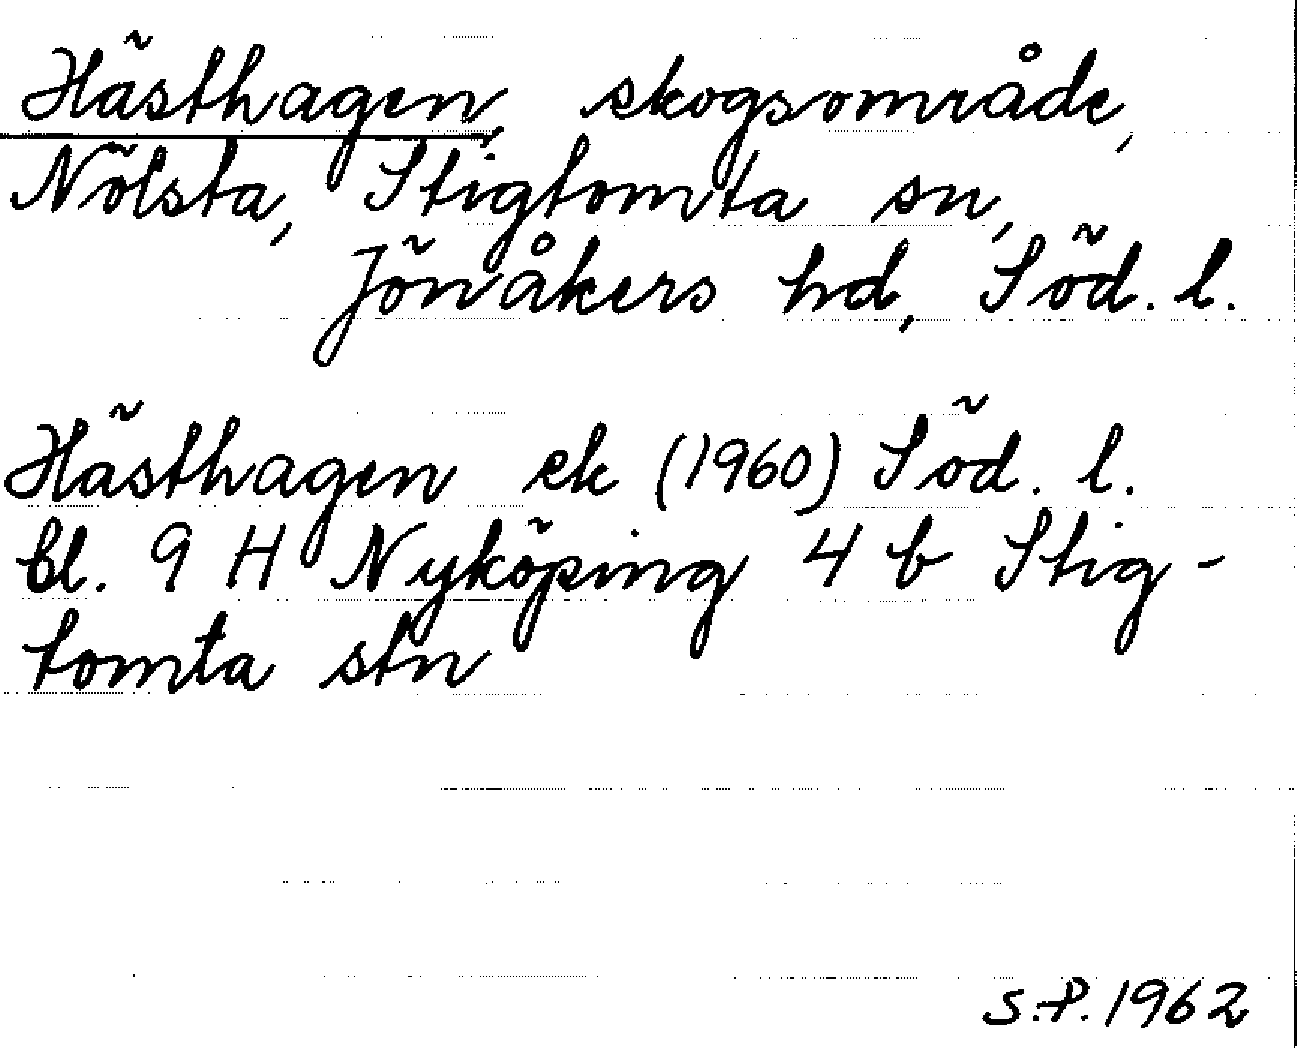 Hästhagen, skogsområde,
Nölsta, Stigtomta sn,
Jönåkers hd, Söd. l.
Hästhagen ek (1960) Söd. l.
bl. 9 H Nyköping 4 b Stig-
tomta stn
S.P. 1962